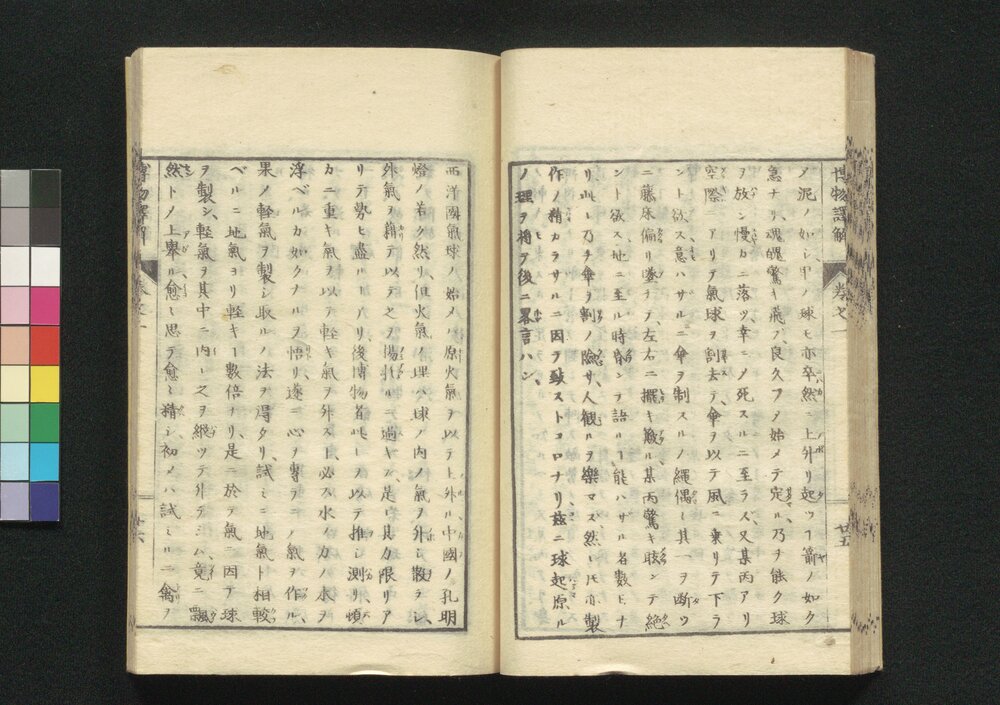 博物譯解
卷之一
廿五
メ泥ノ如シ甲ノ球モ亦卒然ニ上升リ起ツ箭ノ如ク
急ナリ、魂魄驚キ飛ブ、良久フメ始メテ定ル乃ヲ能ク球
ヲ放ン慢カニ落ツ幸ニメ死スルニ至ラス又某丙アリ
空際ニアリテ氣球ヲ割去テ、傘ヲ以テ風ニ乗リテ下ラ
ント欲ス意ハザルニ傘ヲ制スルノ繩偶其一ヲ断ツ
ニ藤床偏リ墜ヲテ左右ニ擺キ簸ル某丙驚キ眩ンテ絶
ント欲ス地ニ至ル時ンヲ語ル能ハザル者数ヒナ
リ此レ乃ヲ傘ヲ割ノ險サ、人観ルヲ樂マズ然レ亦製
作ノ精カラサルニ因ラ致ストコロナリ茲ニ球起原ル
ノ理ヲ将テ後ニ畧言ハン、
西洋國氣球ノ始メハ原火氣ヲ以テ上升ル中國ノ孔明
燈ノ革ク然リ、但火氣ノ理ハ球ノ内ノ氣ヲ外ニ散ラシ、
外氣ヲ藉テ以テ之ヲ揚ルニ過ギズ、是レ其力限リア
リテ勢ヒ盡ルアリ後博物者此レヲ以テ推シ測リ傾
カニ重キ氣ヲ以テ軽キ氣ヲ外ス、必ス水ノ力ノ木ヲ
浮ベルカ如クナルヲ悟リ、遂ニ心ヲ専ラノ氣ヲ作ル、
果ノ軽氣ヲ製シ取ルノ法ヲ得タリ、試ミニ地氣ト相較
ベルニ地氣ヨリ軽キ數倍ナリ、是ニ於テ氣ニ因テ球
ヲ製シ、軽氣ヲ其中ニ内レ之ヲ縦ツテ外テミハ、竟ニ飄
然トノ上擧ル、愈思テ愈精シ初メハ試ミルニ禽ヲ
博物譯解
卷之一
廿六